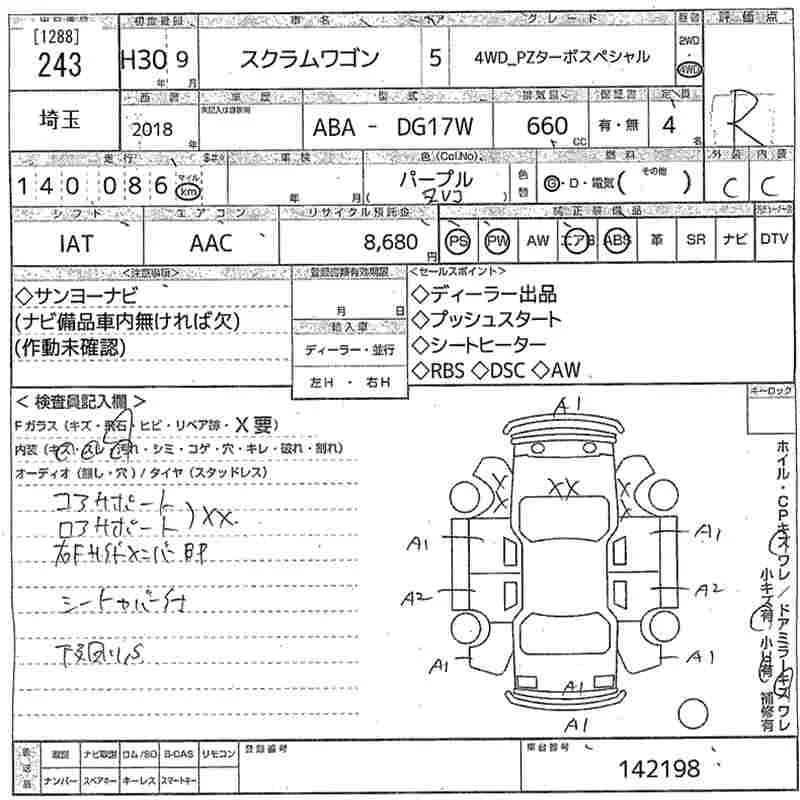 出品番号 初度登録 車名 ドア グレード 駆動 評価点
[1288]
243 H30 9 スクラムワゴン 5 4WD_PZターボスペシャル 2WD
・
4WD
年 月
R
埼玉 西暦 車歴 型式 排気量 保証書 定員
2018 ABA - DG17W 660 有・無 4
年 CC 名
走行 車検 色(Col.No) 燃料 外装 内装
140 086 マイル km 年 月 パープル 色替 G・D・電気( その他 ) C C
( ZVJ )
シフト エアコン リサイクル預託金 純正装備品
IAT AAC 8,680 円 PS PW AW エアB ABS 革 SR ナビ DTV
<注意事項> 登録書類有効期限 <セールスポイント>
◇サンヨーナビ 月 日 ◇ディーラー出品
(ナビ備品車内無ければ欠) 輸入車 ◇プッシュスタート
(作動未確認) ディーラー・並行 ◇シートヒーター
左H ・ 右H ◇RBS ◇DSC ◇AW
<検査員記入欄> キーロック
Fガラス (キズ・飛石・ヒビ・リペア跡・X要)
内装 (キズ・スレ・汚れ・シミ・コゲ・穴・キレ・破れ・割れ)
オーディオ (無し・穴) / タイヤ (スタッドレス)
コアサポート
ロアサポート ) XX
右Fサイドメンバー
シートカバー付
A1
X X XX X X
A1 A1
A2 A2
A1 A1
A1
A1
ホイル・CPキズワレ / ドアミラーキズワレ
小キズ有 小凹有 補修有
後送品 取説 ナビ取説 ロム/SD B-CAS リモコン 登録番号 車台番号
ナンバー スペアキー キーレス スマートキー 142198